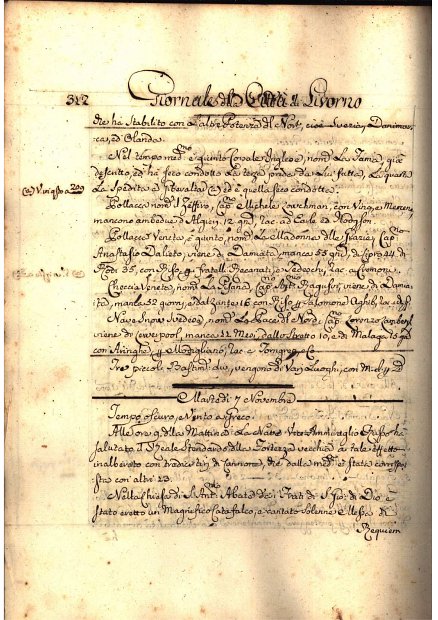 312 Giornale della Città di Livorno
che ha Stabilito con l'altre Potenze del Nort, cioè Svezia, Danimar-
ca, ed Olanda.
Nel tempo med.mo è giunto Corsale Inglese, nom.º La Fama, già
descritto, ed ha seco condotto la terza preda da lui fatta, la quale
la Spedita a Gibilta (a) ed è quella seco condotta:
(a) Vinasso a 299
Pollacca nom.ª il Zeffiro, Cap.º Michele
mancano ambedue d'Algieri, 12 gni, rac. ad Earle ed Hodgson.
Pollacca Veneta, è giunto, nom.ª La Madonna delle Grazie, Cap.º
Anastasio Dalieto, viene di Damiata, manca 55 gni, di Cipro 44, di
Rodi 35, con Riso, q. fratelli Recanati, e
Checcia Veneta, nom.ª La Cap.º viene di Damia-
ta, manca 52 giorni, e dal Zante 16 con Riso, q. Salomone
Nave Snow Svedese, nom.ª La Pace del Nord, Cap.º Lorenzo
viene di Liverpool, manca 22 Mesi, dallo Stretto 10, e di Malaga 18 gni
con Aringhe, q. rac. e
Tre piccoli Bastim.ti due, vengono da Varj Luoghi, con
Martedì 7 Novembre
Tempo oscuro, e Vento a freco.
Alle ore 9 della Mattina La Nave Vice Ammiraglio Russo ha
salutato il Reale Stendardo della Fortezza vecchia a tale effetto
inalberato con tredici tiri di Cannone, che dalla med.ma è stata corrispo-
sta con altri 13.
Nella Chiesa di S. Ant.º Abate de' Frati di S. Gio: di Dio è
stato eretto un Magnifico Catafalco, e cantato Solenne Messa di
Requiem